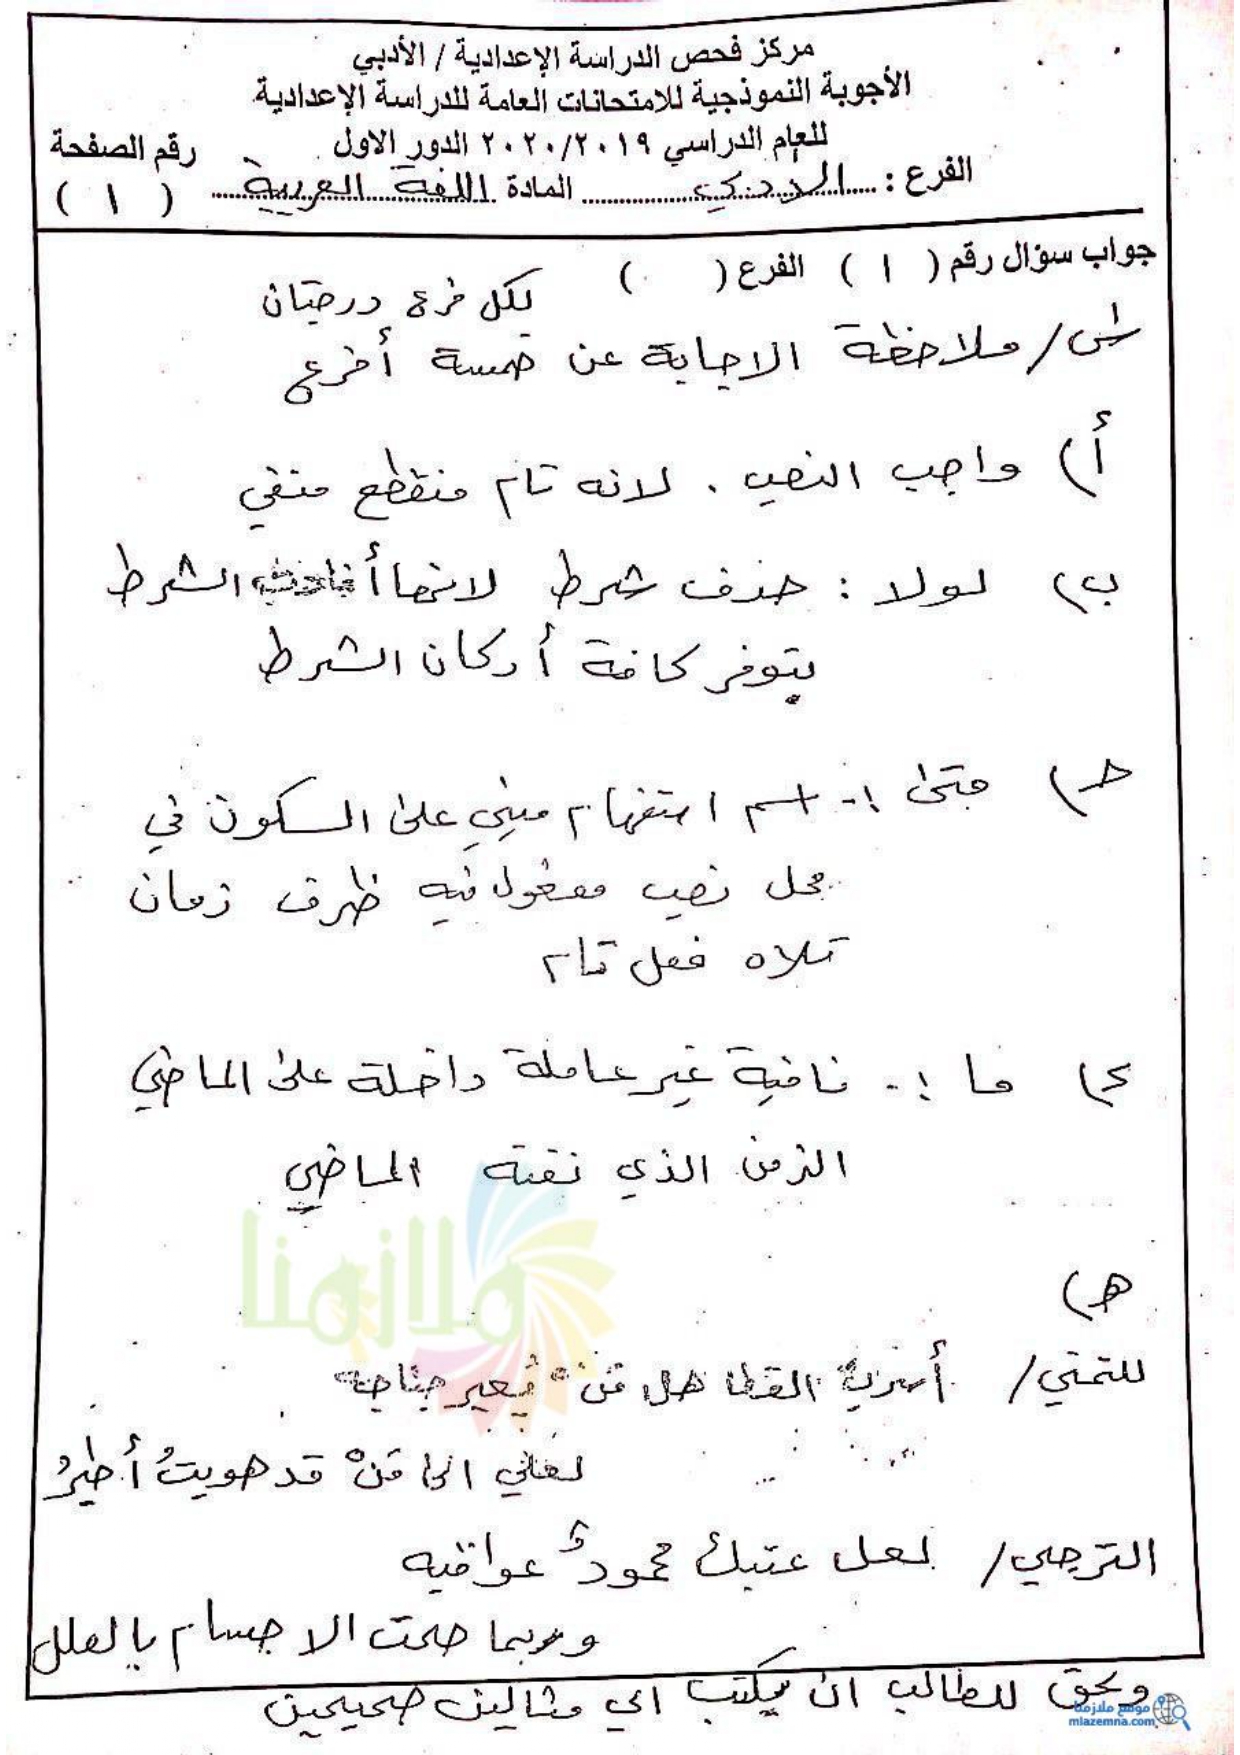 مركز فحص الدراسة الإعدادية / الأدبي
الأجوبة النموذجية للامتحانات العامة للدراسة الإعدادية
للعام الدراسي ٢٠١٩/٢٠٢٠ الدور الاول
رقم الصفحة
الفرع : الأدبي المادة اللغة العربية ( ١ )
جواب سؤال رقم ( ١ ) الفرع ( )
لكل فرع درجتان
س١/ ملاحظة الاجابة عن خمسة أفرع
أ) واجب النصب . لانه تام منقطع منفي
ب) لولا : حذف شرط لانها أفادت الشرط
يتوفر كافة أركان الشرط
حـ) متى :- اسم استفهام مبني على السكون في
محل نصب مفعول فيه ظرف زمان
تلاه فعل تام
د) ما :- نافية غير عاملة داخلة على الماضي
الزمن الذي نفته الماضي
هـ)
للتمني/ أسربَ القطا هل مَنْ يُعير جناحه
لعلي الى مَنْ قد هويتُ أطيرُ
الترجي/ لعل عتبك محمودٌ عواقبه
وربما صحت الاجسام بالعلل
ويحق للطالب ان يكتب اي مثالين صحيحين
ملازمنا
موقع ملازمنا
mlazemna.com